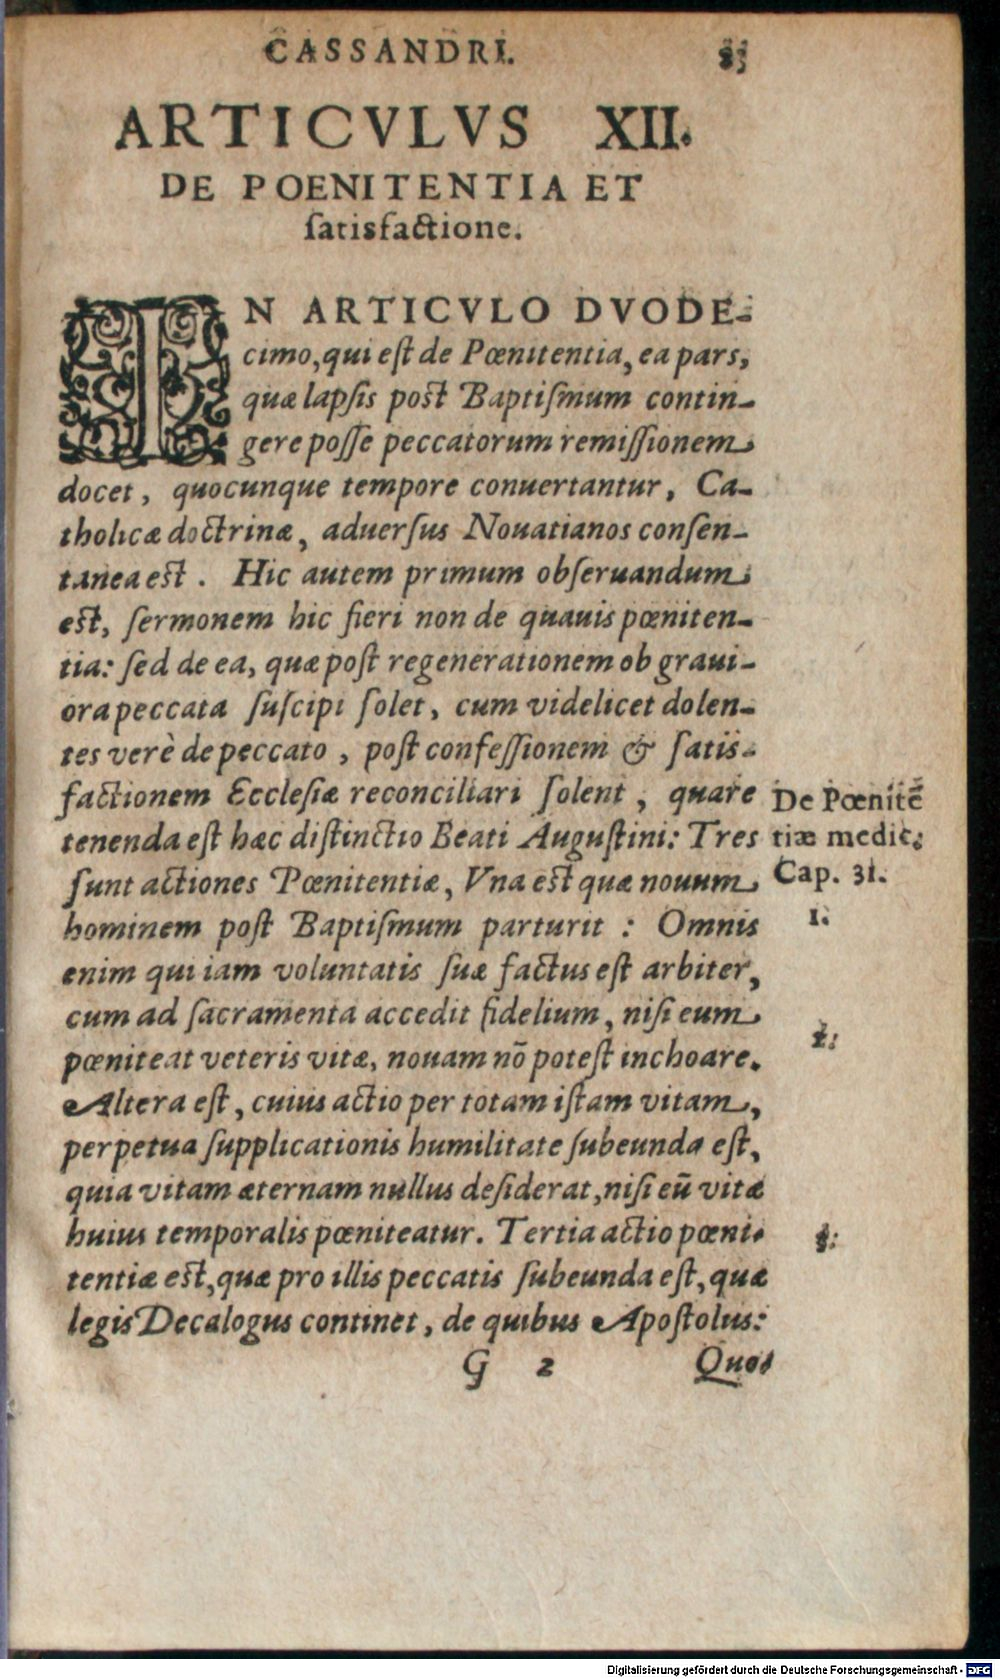 CASSANDRI. 83
ARTICVLVS XII.
DE POENITENTIA ET
ſatisfactione.
IN ARTICVLO DVODE-
cimo, qui eſt de Pœnitentia, ea pars,
quæ lapſis poſt Baptiſmum contin-
gere poſſe peccatorum remiſſionem
docet, quocunque tempore conuertantur, Ca-
tholicæ doctrinæ, aduerſus Nouatianos conſen-
tanea eſt. Hic autem primum obſeruandum
eſt, ſermonem hic fieri non de quauis pœniten-
tia: ſed de ea, quæ poſt regenerationem ob graui-
ora peccata ſuſcipi ſolet, cum videlicet dolen-
tes verè de peccato, poſt confeſſionem & ſatis-
factionem Eccleſiæ reconciliari ſolent, quare
tenenda eſt hæc diſtinctio Beati Auguſtini: Tres
ſunt actiones Pœnitentiæ, Vna eſt quæ nouum
hominem poſt Baptiſmum parturit : Omnis
enim qui iam voluntatis ſuæ factus eſt arbiter,
cum ad ſacramenta accedit fidelium, niſi eum
pœniteat veteris vitæ, nouam nō poteſt inchoare.
Altera eſt, cuius actio per totam iſtam vitam,
perpetua ſupplicationis humilitate ſubeunda eſt,
quia vitam æternam nullus deſiderat, niſi eū vitæ
huius temporalis pœniteatur. Tertia actio pœni-
tentiæ eſt, quæ pro illis peccatis ſubeunda eſt, quæ
legis Decalogus continet, de quibus Apoſtolus:
G 2 Quos
De Pœnitē
tiæ medic:
Cap. 31.
1.
2.
3.
Digitalisierung gefördert durch die Deutsche Forschungsgemeinschaft - DFG